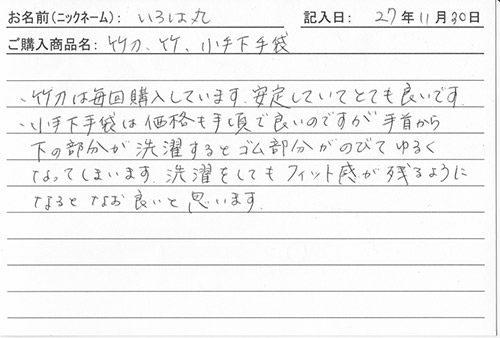 お名前(ニックネーム): いろは丸 記入日: 27年11月30日
ご購入商品名: 竹刀、竹、小手下手袋
・竹刀は毎回購入しています。安定していてとても良いです。
・小手下手袋は価格も手頃で良いのですが手首から
下の部分が洗濯するとゴム部分がのびてゆるく
なってしまいます。洗濯をしてもフィット感が残るように
なるとなお良いと思います。